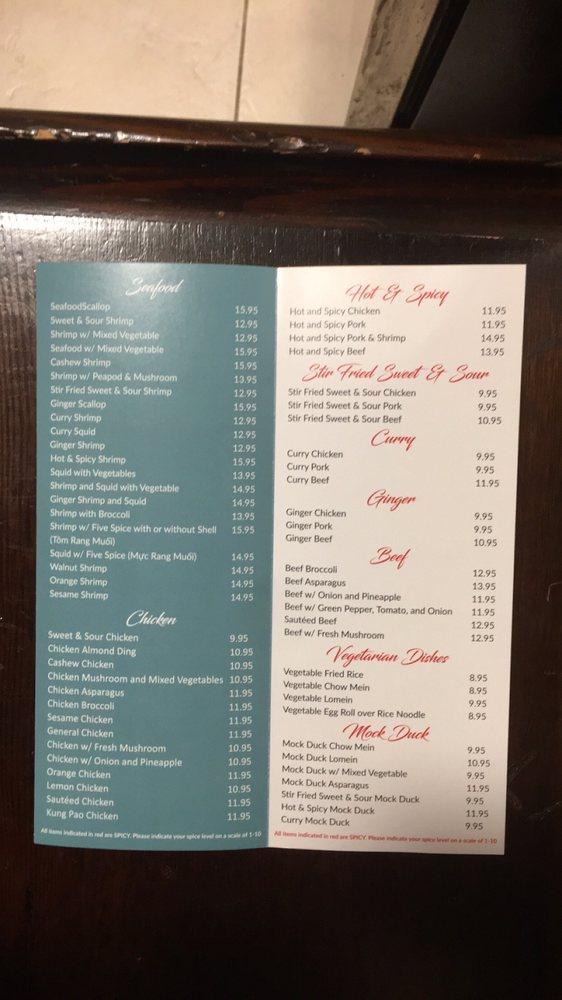 Seafood
SeafoodScallop 15.95
Sweet & Sour Shrimp 12.95
Shrimp w/ Mixed Vegetable 12.95
Seafood w/ Mixed Vegetable 15.95
Cashew Shrimp 15.95
Shrimp w/ Peapod & Mushroom 13.95
Stir Fried Sweet & Sour Shrimp 12.95
Ginger Scallop 15.95
Curry Shrimp 12.95
Curry Squid 12.95
Ginger Shrimp 12.95
Hot & Spicy Shrimp 15.95
Squid with Vegetables 13.95
Shrimp and Squid with Vegetable 14.95
Ginger Shrimp and Squid 14.95
Shrimp with Broccoli 13.95
Shrimp w/ Five Spice with or without Shell 15.95
(Tôm Rang Muối)
Squid w/ Five Spice (Mực Rang Muối) 14.95
Walnut Shrimp 14.95
Orange Shrimp 14.95
Sesame Shrimp 14.95
Chicken
Sweet & Sour Chicken 9.95
Chicken Almond Ding 10.95
Cashew Chicken 10.95
Chicken Mushroom and Mixed Vegetables 10.95
Chicken Asparagus 11.95
Chicken Broccoli 11.95
Sesame Chicken 11.95
General Chicken 11.95
Chicken w/ Fresh Mushroom 10.95
Chicken w/ Onion and Pineapple 10.95
Orange Chicken 11.95
Lemon Chicken 10.95
Sautéed Chicken 11.95
Kung Pao Chicken 11.95
All items indicated in red are SPICY. Please indicate your spice level on a scale of 1-10
Hot & Spicy
Hot and Spicy Chicken 11.95
Hot and Spicy Pork 11.95
Hot and Spicy Pork & Shrimp 14.95
Hot and Spicy Beef 13.95
Stir Fried Sweet & Sour
Stir Fried Sweet & Sour Chicken 9.95
Stir Fried Sweet & Sour Pork 9.95
Stir Fried Sweet & Sour Beef 10.95
Curry
Curry Chicken 9.95
Curry Pork 9.95
Curry Beef 11.95
Ginger
Ginger Chicken 9.95
Ginger Pork 9.95
Ginger Beef 10.95
Beef
Beef Broccoli 12.95
Beef Asparagus 13.95
Beef w/ Onion and Pineapple 11.95
Beef w/ Green Pepper, Tomato, and Onion 11.95
Sautéed Beef 12.95
Beef w/ Fresh Mushroom 12.95
Vegetarian Dishes
Vegetable Fried Rice 8.95
Vegetable Chow Mein 8.95
Vegetable Lomein 9.95
Vegetable Egg Roll over Rice Noodle 8.95
Mock Duck
Mock Duck Chow Mein 9.95
Mock Duck Lomein 10.95
Mock Duck w/ Mixed Vegetable 9.95
Mock Duck Asparagus 11.95
Stir Fried Sweet & Sour Mock Duck 9.95
Hot & Spicy Mock Duck 11.95
Curry Mock Duck 9.95
All items indicated in red are SPICY. Please indicate your spice level on a scale of 1-10